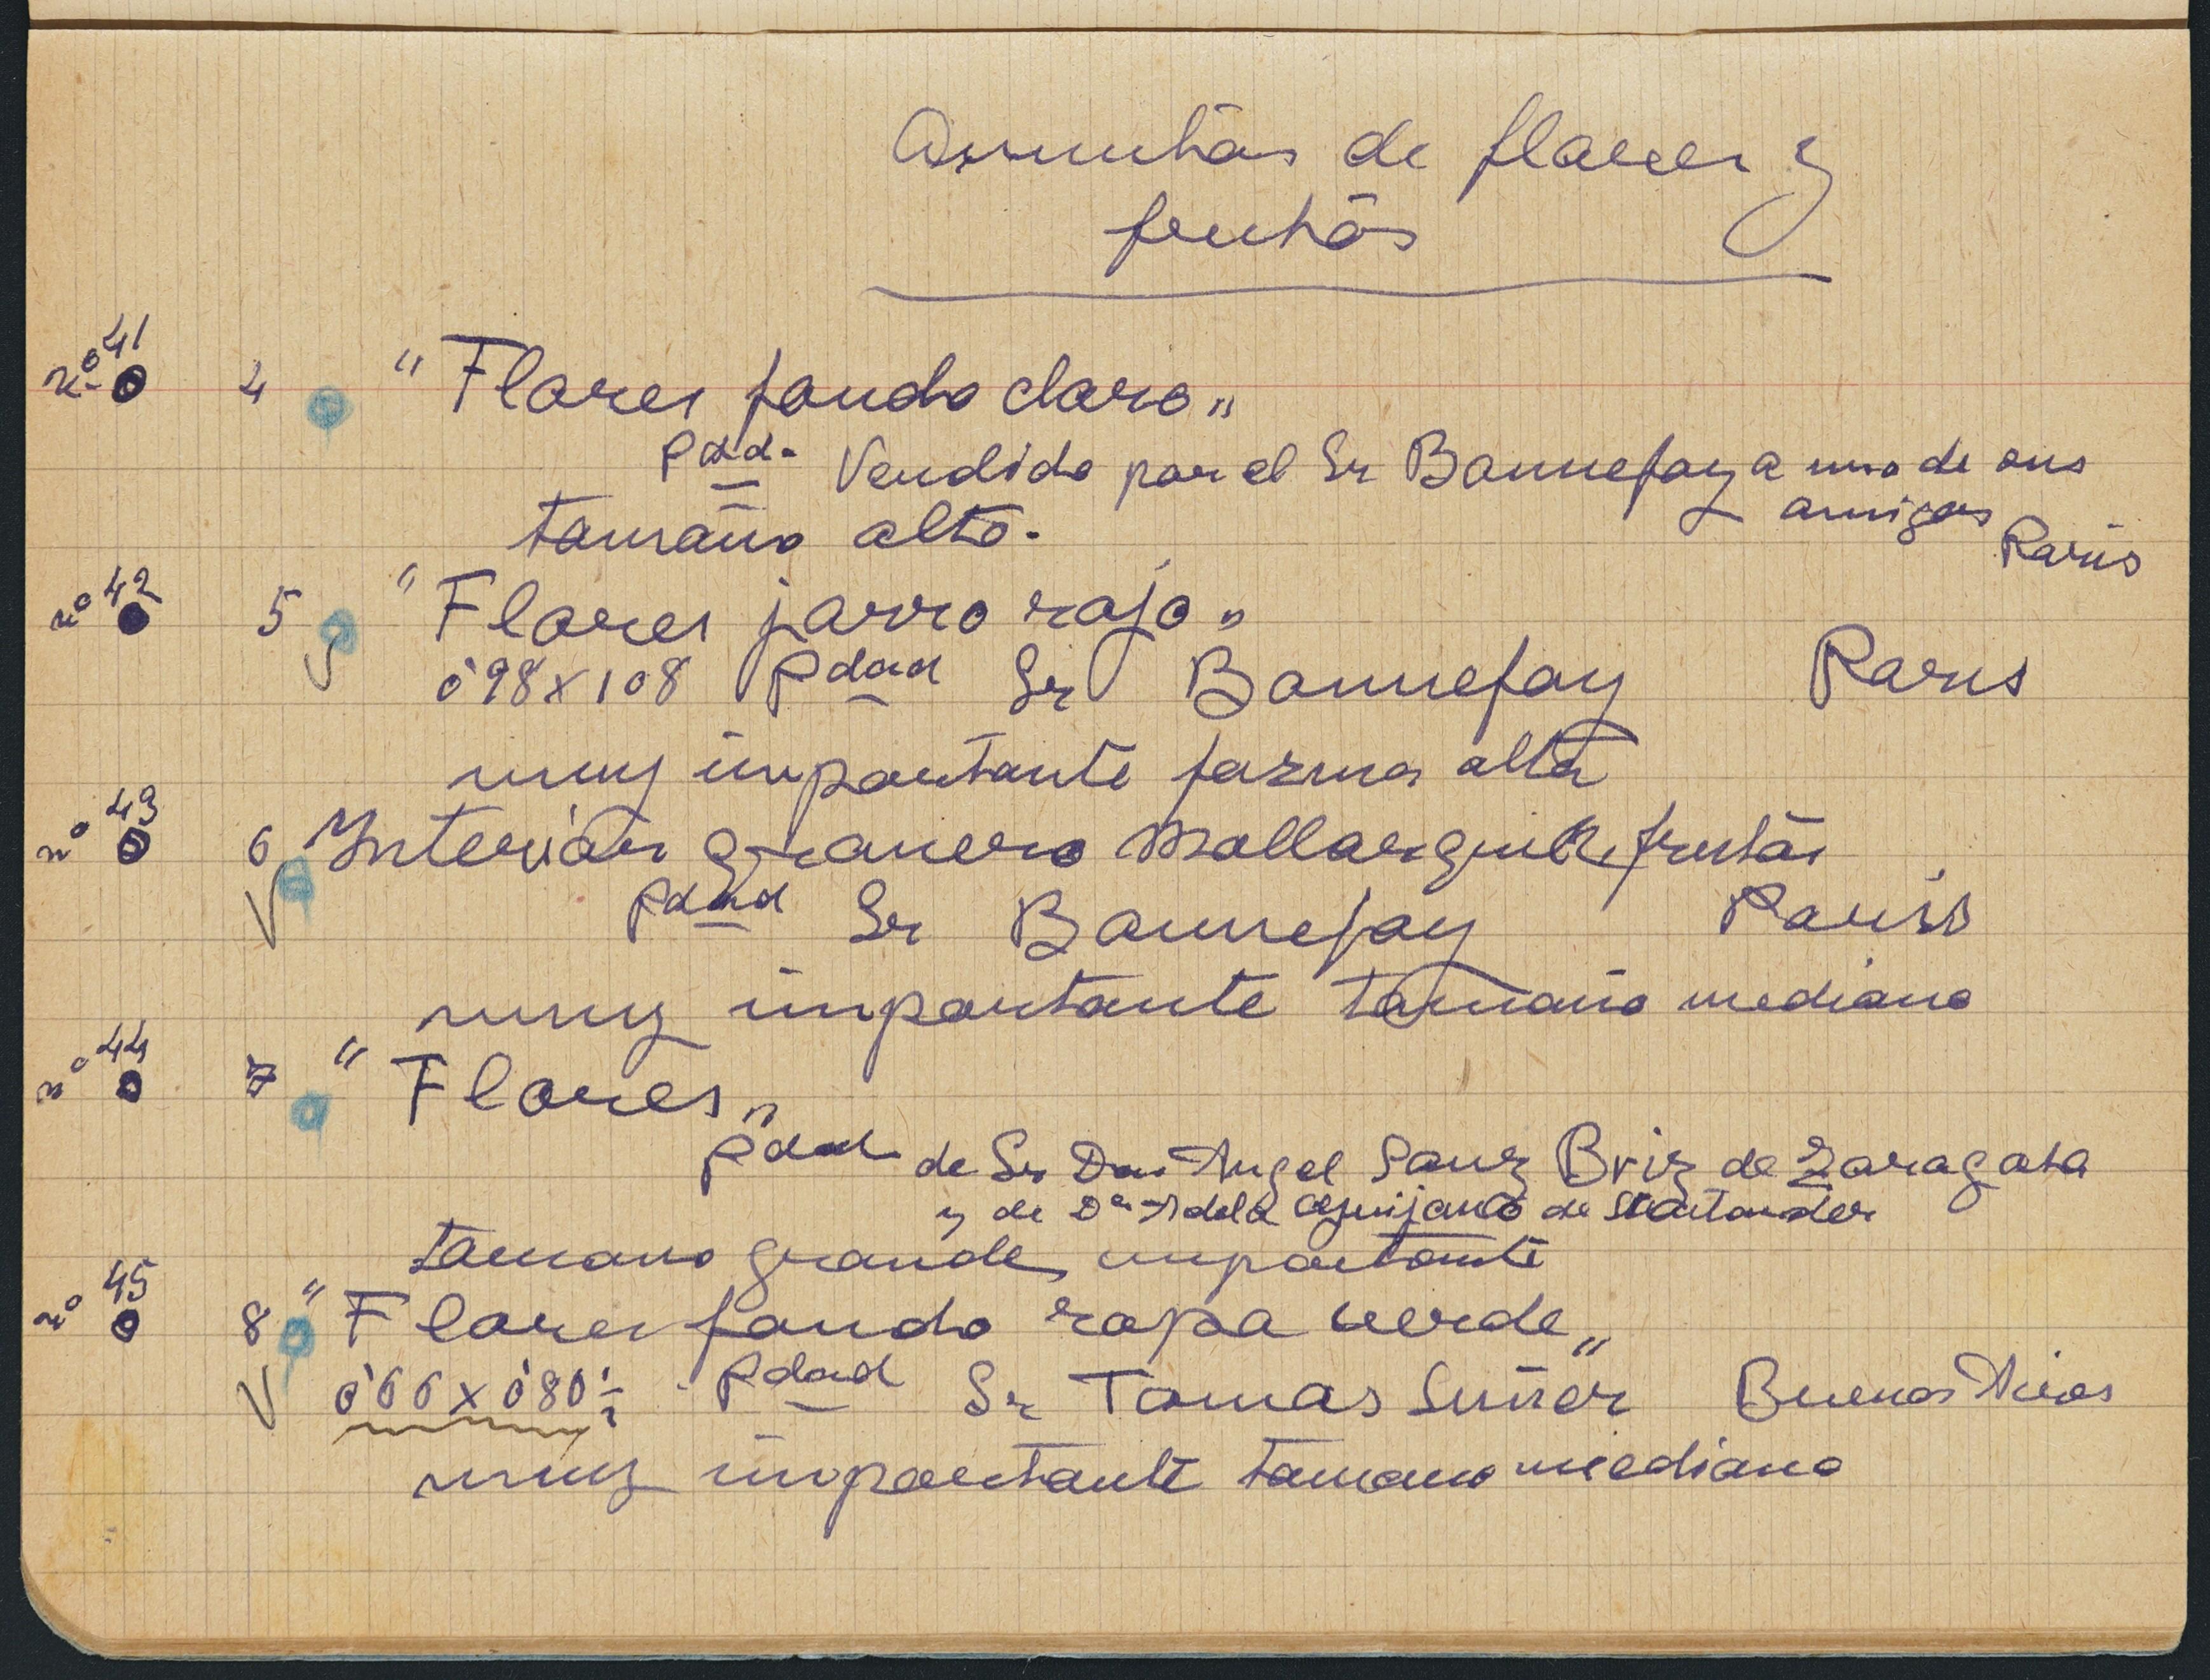 Asuntos de flores y
frutas
nº 41 4 "Flores fondo claro"
Pdad. Vendido por el Sr Bonnefoy a uno de sus
amigos
tamaño alto. Paris
nº 42 5 "Flores jarro rojo"
0'98 x 108 Pdad Sr Bonnefoy Paris
muy importante forma alta
nº 43 6 Interior granero mallorquin frutas
Pdad Sr Bonnefoy Paris
muy importante tamaño mediano
nº 44 7 "Flores"
Pdad de Sr Don Angel Sanz Briz de Zaragoza
y de Dª Adela Quijano de Santander
tamano grande importante
nº 45 8 "Flores fondo ropa verde"
0'66 x 0'80 Pdad Sr Tomas Suñer Buenos Aires
muy importante tamano mediano